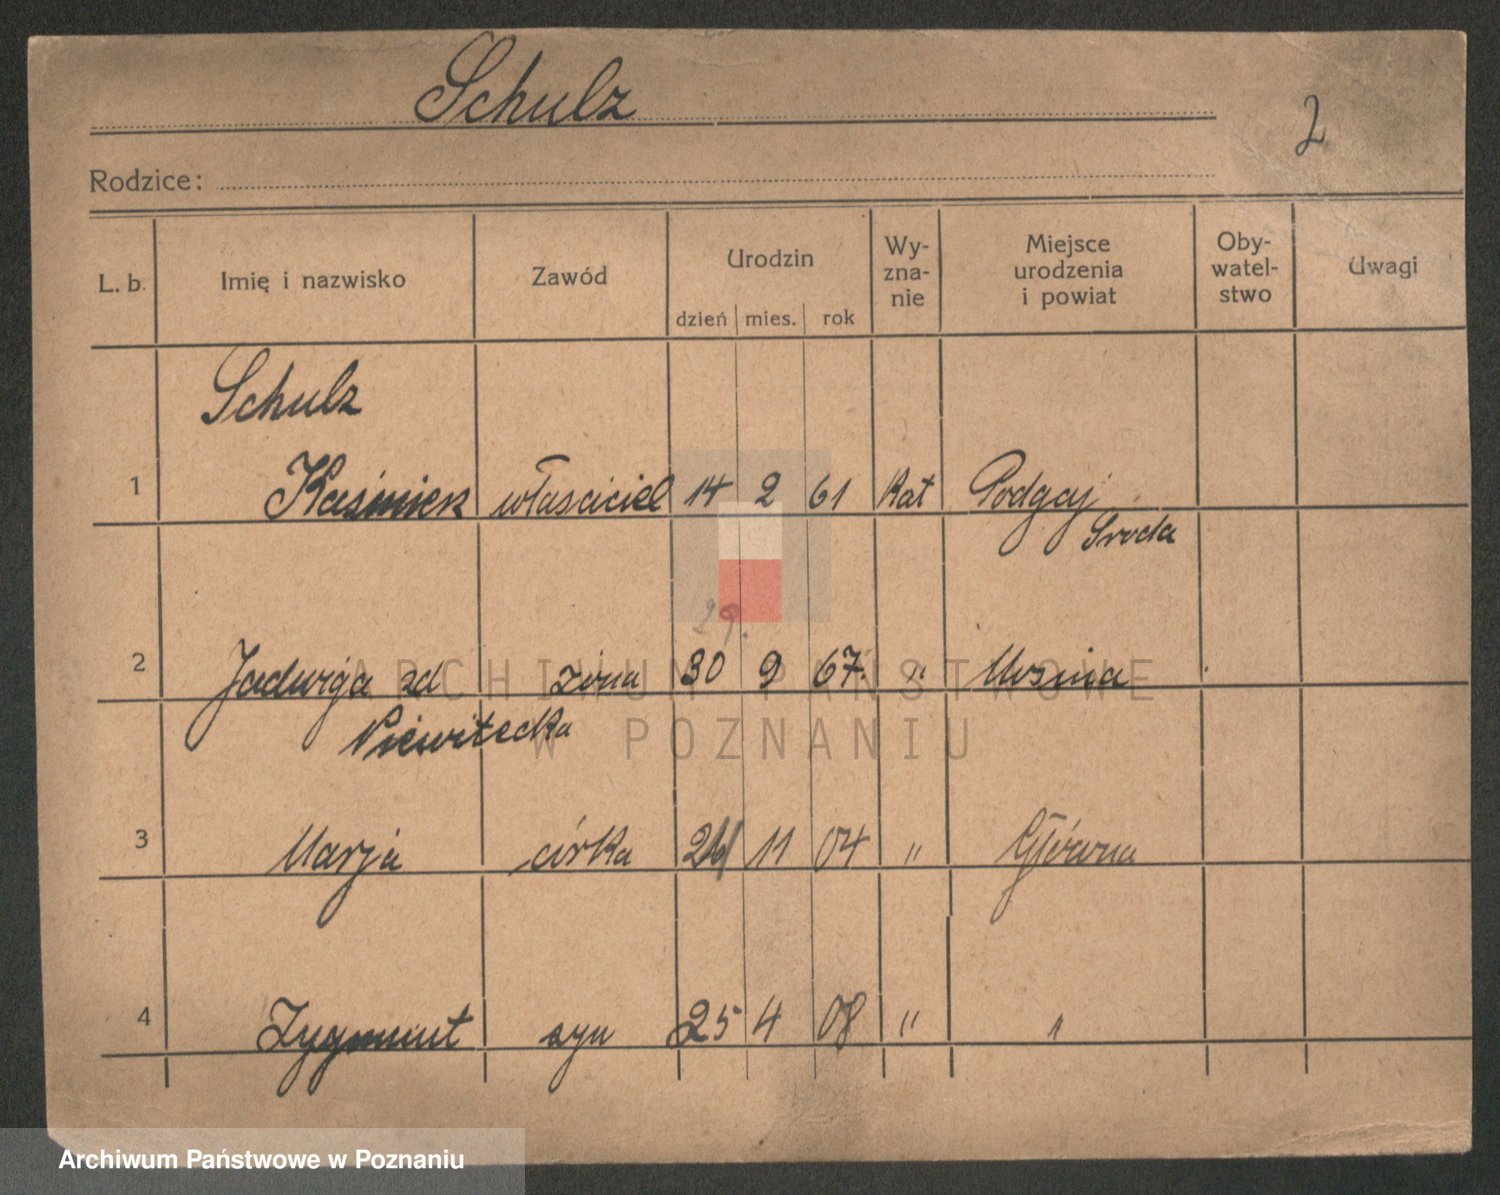 Schulz
2
Rodzice:
L. b. Imię i nazwisko Zawód Urodzin dzień mies. rok Wy-zna-nie Miejsce urodzenia i powiat Oby-watel-stwo Uwagi
Schulz
1 Kaśmierz właściciel 14 2 61 Kat Podgaj
Sroda
29.
2 Jadwiga zd żona 30 9 67. "
3 Marja córka 26 11 04 " Główna
4 Zygmunt syn 25 4 08 " "
ARCHIWUM PAŃSTWOWE
W POZNANIU
Archiwum Państwowe w Poznaniu